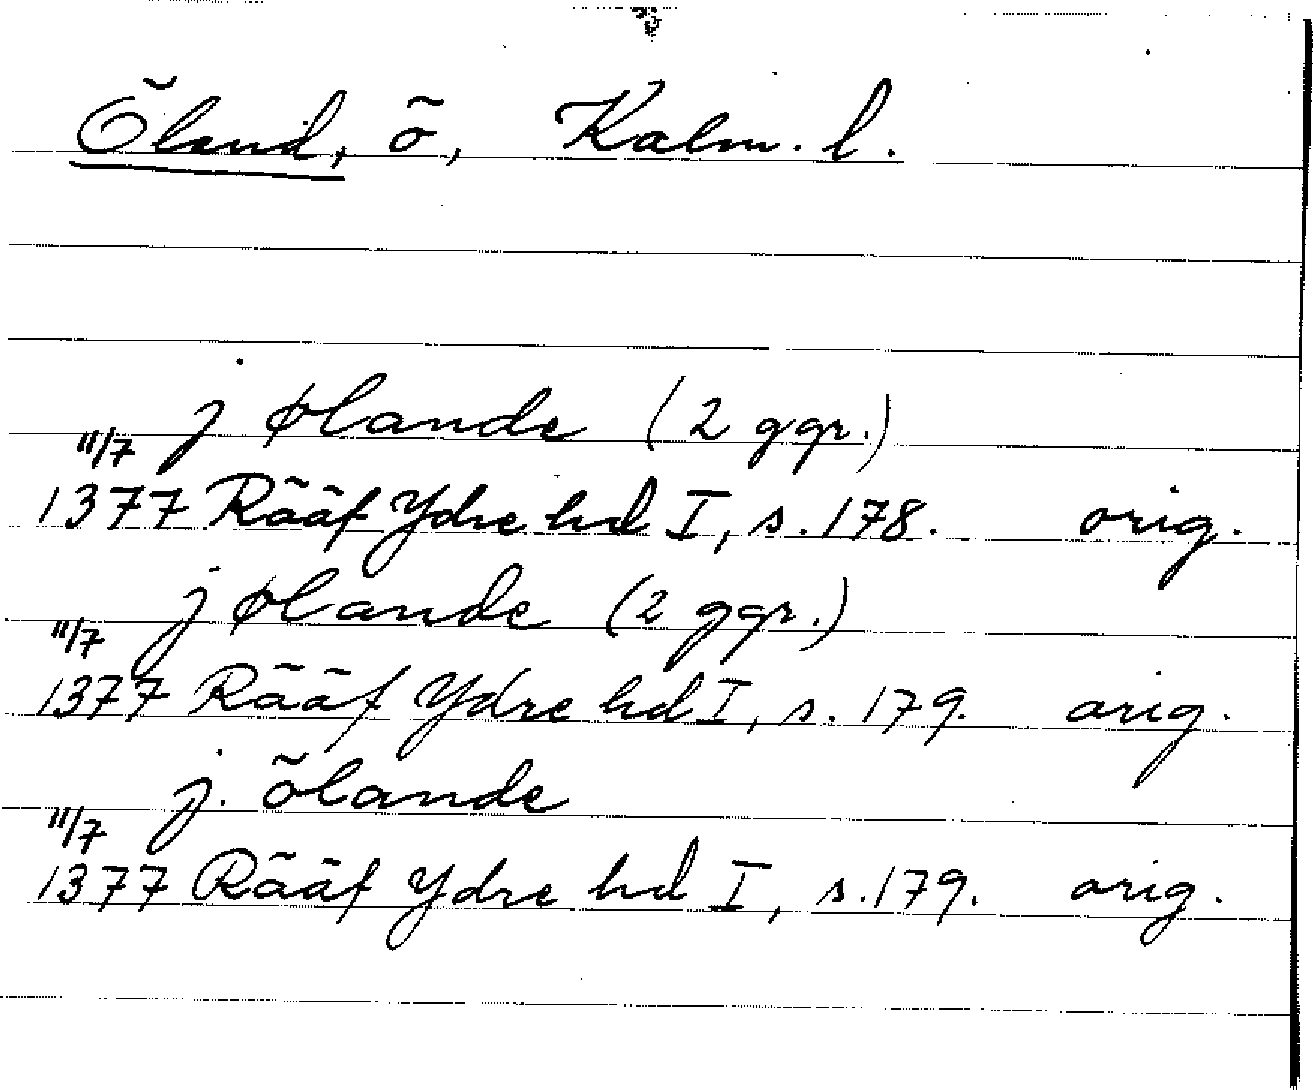 Öland, ö, Kalm. l.
j ølande (2 ggr.)
11/7
1377 Rääf Ydre hd I, s. 178. orig.
j ølande (2 ggr.)
11/7
1377 Rääf Ydre hd I, s. 179. orig.
j. ölande
11/7
1377 Rääf Ydre hd I, s. 179. orig.